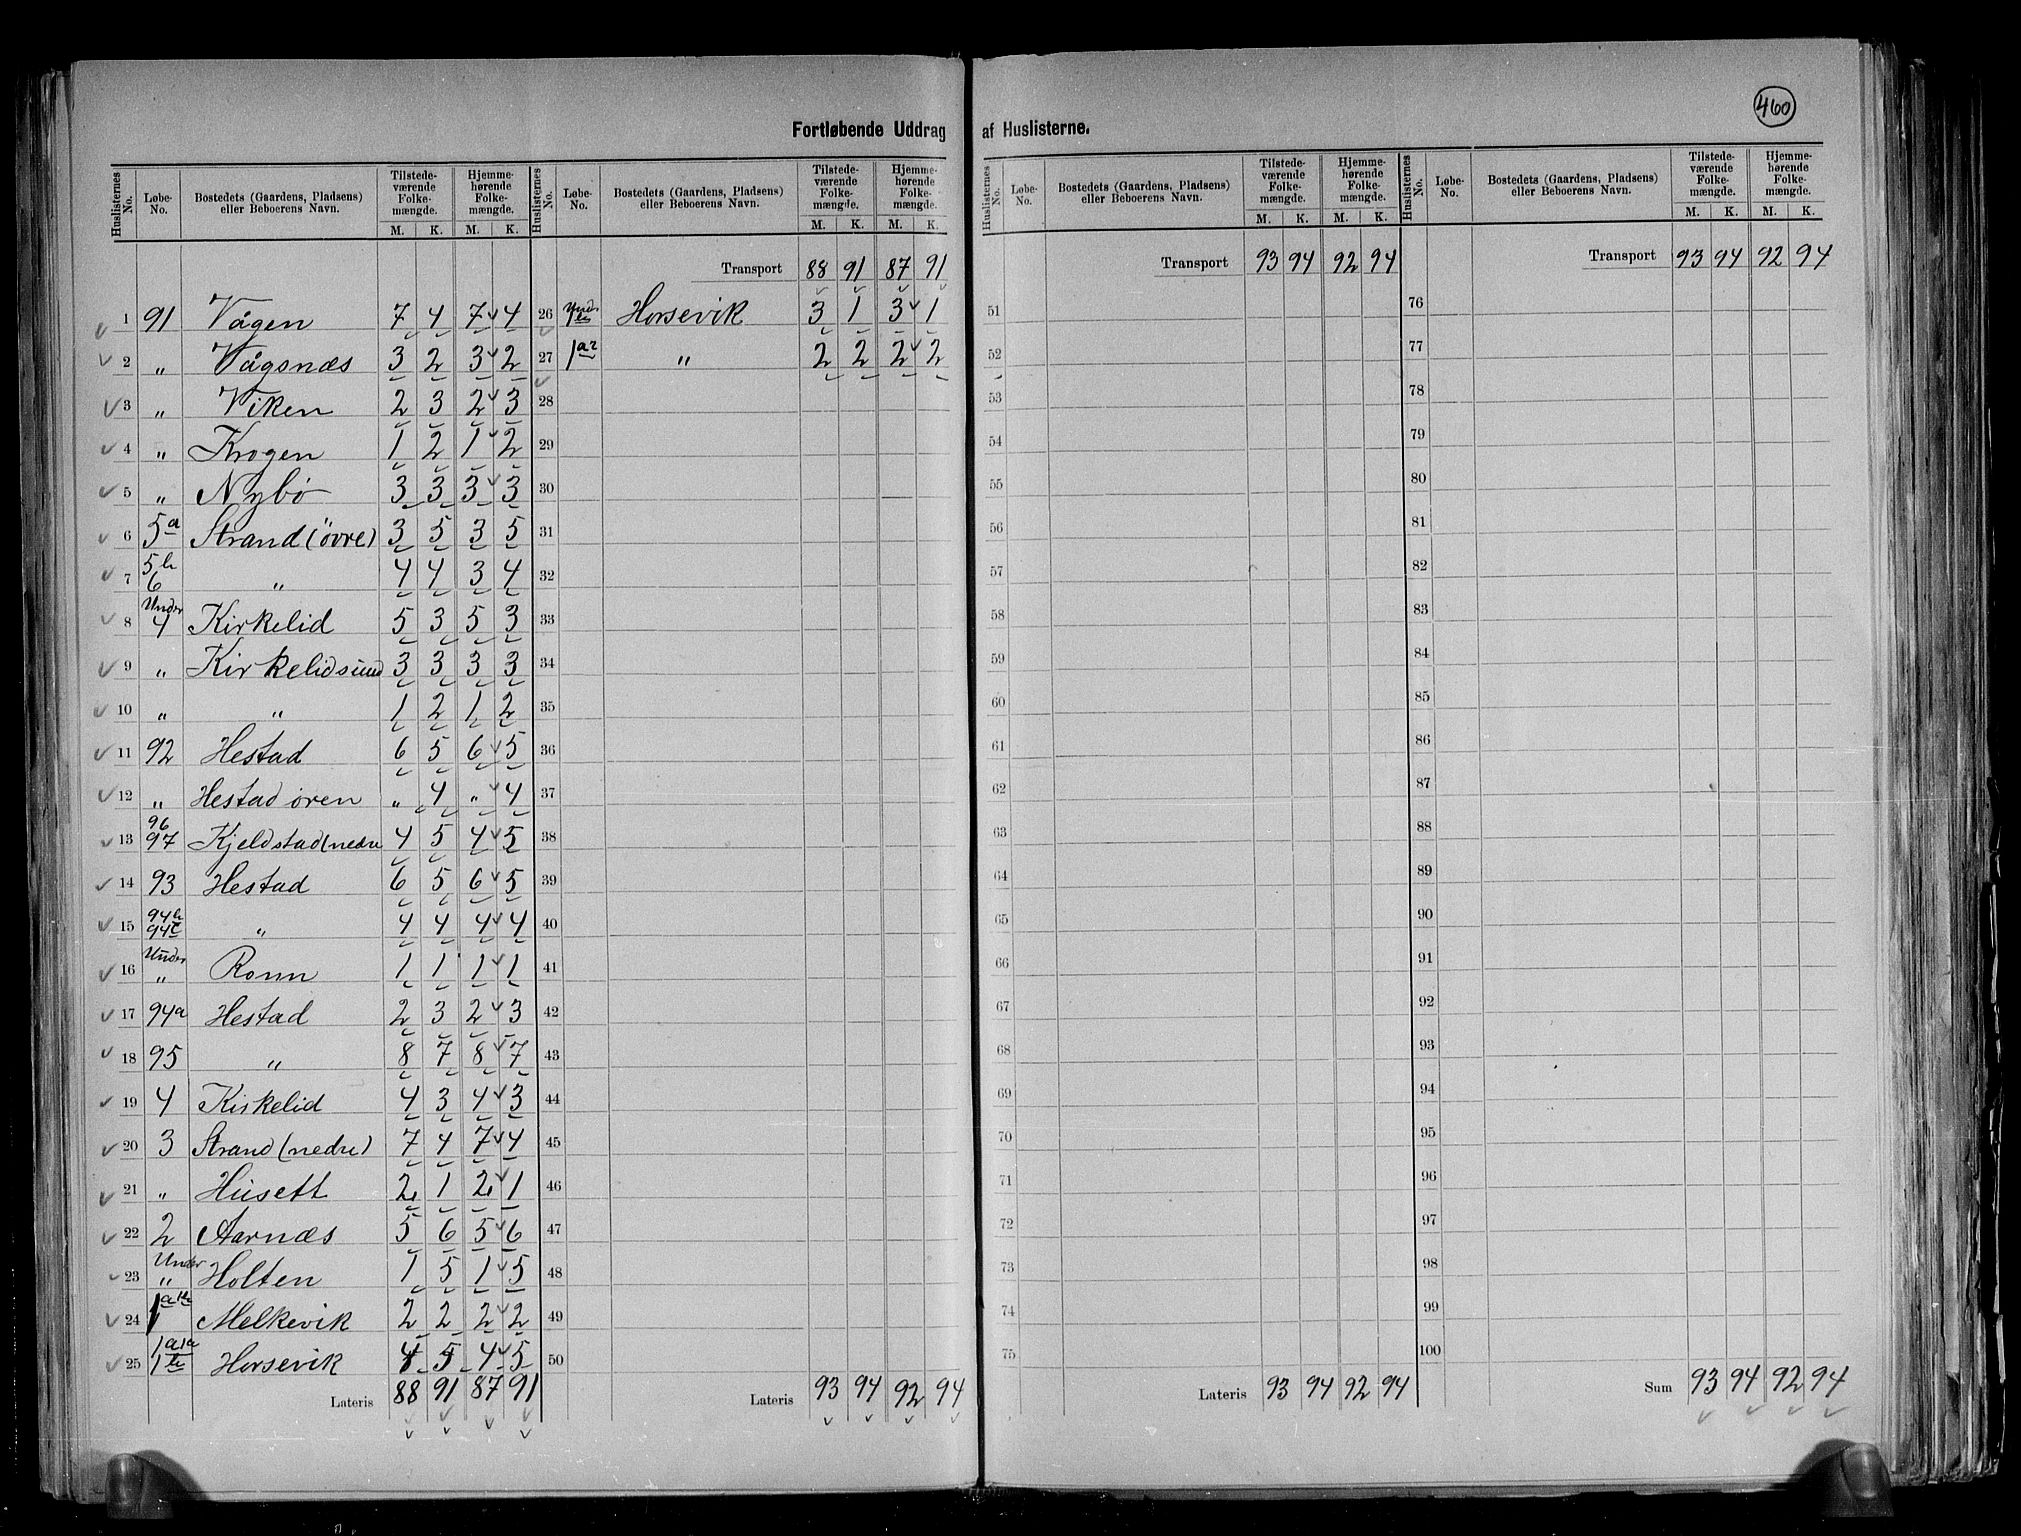 460
Fortløbende Uddrag af Huslisterne.
Huslisternes No. Løbe-No. Bostedets (Gaardens, Pladsens) eller Beboerens Navn. Tilstedeværende Folkemængde. M. K. Hjemmehørende Folkemængde. M. K.
1 91 Vågen 7 4 7 4
2 „ Vågsnæs 3 2 3 2
3 „ Viken 2 3 2 3
4 „ Krogen 1 2 1 2
5 „ Nybö 3 3 3 3
6 5a Strand (övre) 3 5 3 5
7 5b 6 „ 4 4 3 4
8 Under 4 Kirkelid 5 3 5 3
9 „ Kirkelidsund 3 3 3 3
10 „ „ 1 2 1 2
11 92 Hestad 6 5 6 5
12 „ Hestadören „ 4 „ 4
13 96 97 Kjeldstad (nedre 4 5 4 5
14 93 Hestad 6 5 6 5
15 94b 94c „ 4 4 4 4
16 Under „ Ronn 1 1 1 1
17 94a Hestad 2 3 2 3
18 95 „ 8 7 8 7
19 4 Kirkelid 4 3 4 3
20 3 Strand (nedre) 7 4 7 4
21 „ Husett 2 1 2 1
22 2 Aarnæs 5 6 5 6
23 Under „ Holten 1 5 1 5
24 1a1b Melkevik 2 2 2 2
25 1a1a 1b Horsevik 4 5 4 5
Lateris 88 91 87 91
Huslisternes No. Løbe-No. Bostedets (Gaardens, Pladsens) eller Beboerens Navn. Tilstedeværende Folkemængde. M. K. Hjemmehørende Folkemængde. M. K.
Transport 88 91 87 91
26 Under 1b Horsevik 3 1 3 1
27 1a2 „ 2 2 2 2
28
29
30
31
32
33
34
35
36
37
38
39
40
41
42
43
44
45
46
47
48
49
50
Lateris 93 94 92 94
Huslisternes No. Løbe-No. Bostedets (Gaardens, Pladsens) eller Beboerens Navn. Tilstedeværende Folkemængde. M. K. Hjemmehørende Folkemængde. M. K.
Transport 93 94 92 94
51
52
53
54
55
56
57
58
59
60
61
62
63
64
65
66
67
68
69
70
71
72
73
74
75
Lateris 93 94 92 94
Huslisternes No. Løbe-No. Bostedets (Gaardens, Pladsens) eller Beboerens Navn. Tilstedeværende Folkemængde. M. K. Hjemmehørende Folkemængde. M. K.
Transport 93 94 92 94
76
77
78
79
80
81
82
83
84
85
86
87
88
89
90
91
92
93
94
95
96
97
98
99
100
Sum 93 94 92 94